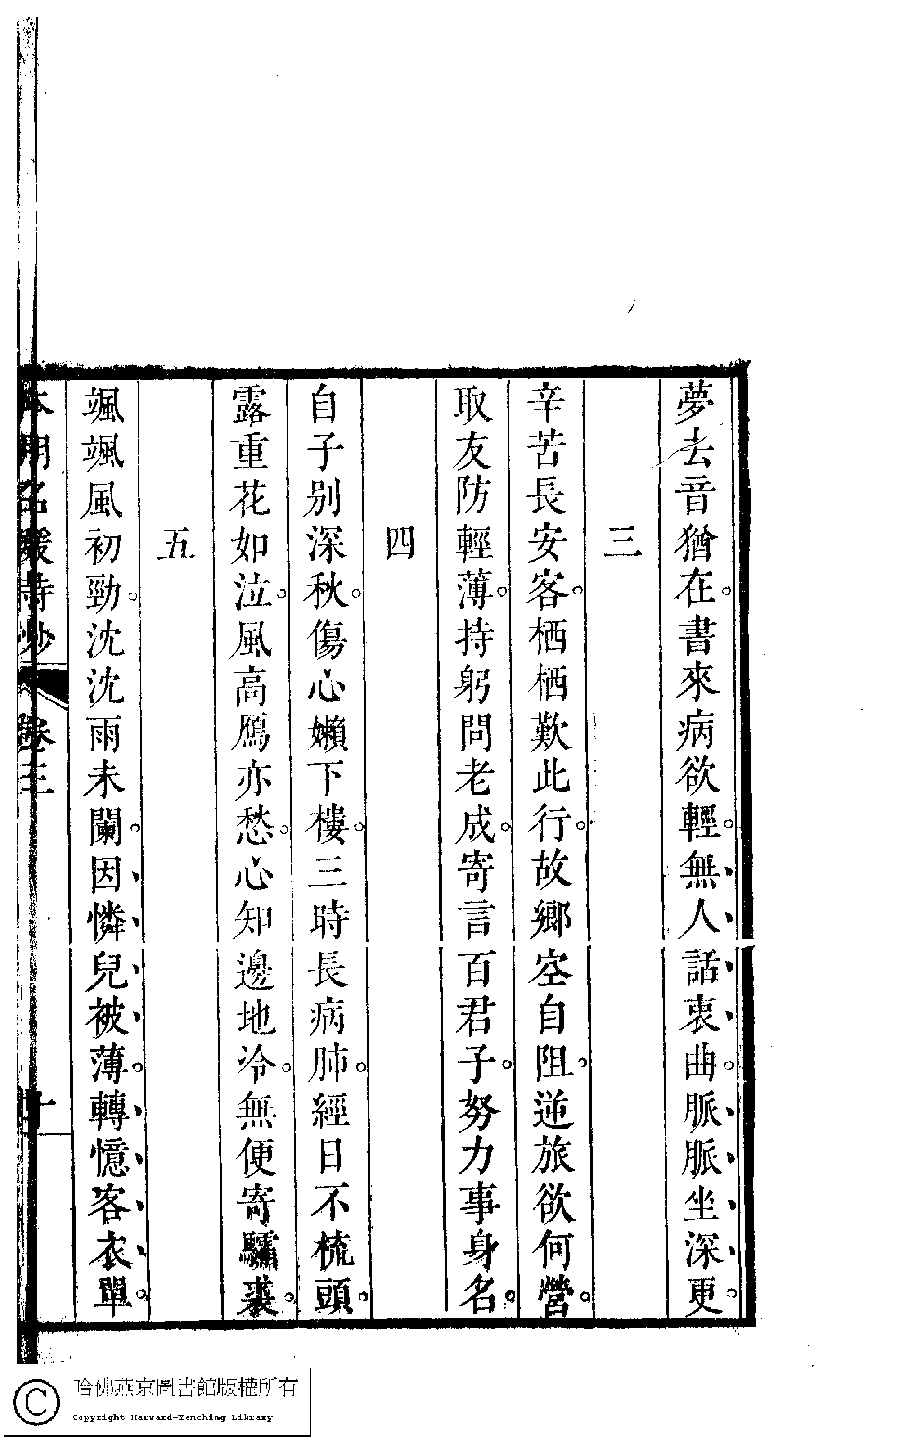 夢去音猶在。書來病欲輕。無人話衷曲。脈脈坐深更。
三
辛苦長安客。栖栖歎此行。故鄉空自阻。逆旅欲何營。
取友防輕薄。持躬問老成。寄言百君子。努力事身名。
四
自子別深秋。傷心嬾下樓。三時長病肺。經日不梳頭。
露重花如泣。風高鴈亦愁。心知邊地冷。無便寄驌裘。
五
颯颯風初勁。沈沈雨未闌。因憐兒被薄。轉憶客衣單。
本朝名媛詩鈔
卷三
十
哈佛燕京圖書館版權所有
Copyright Harvard-Yenching Library